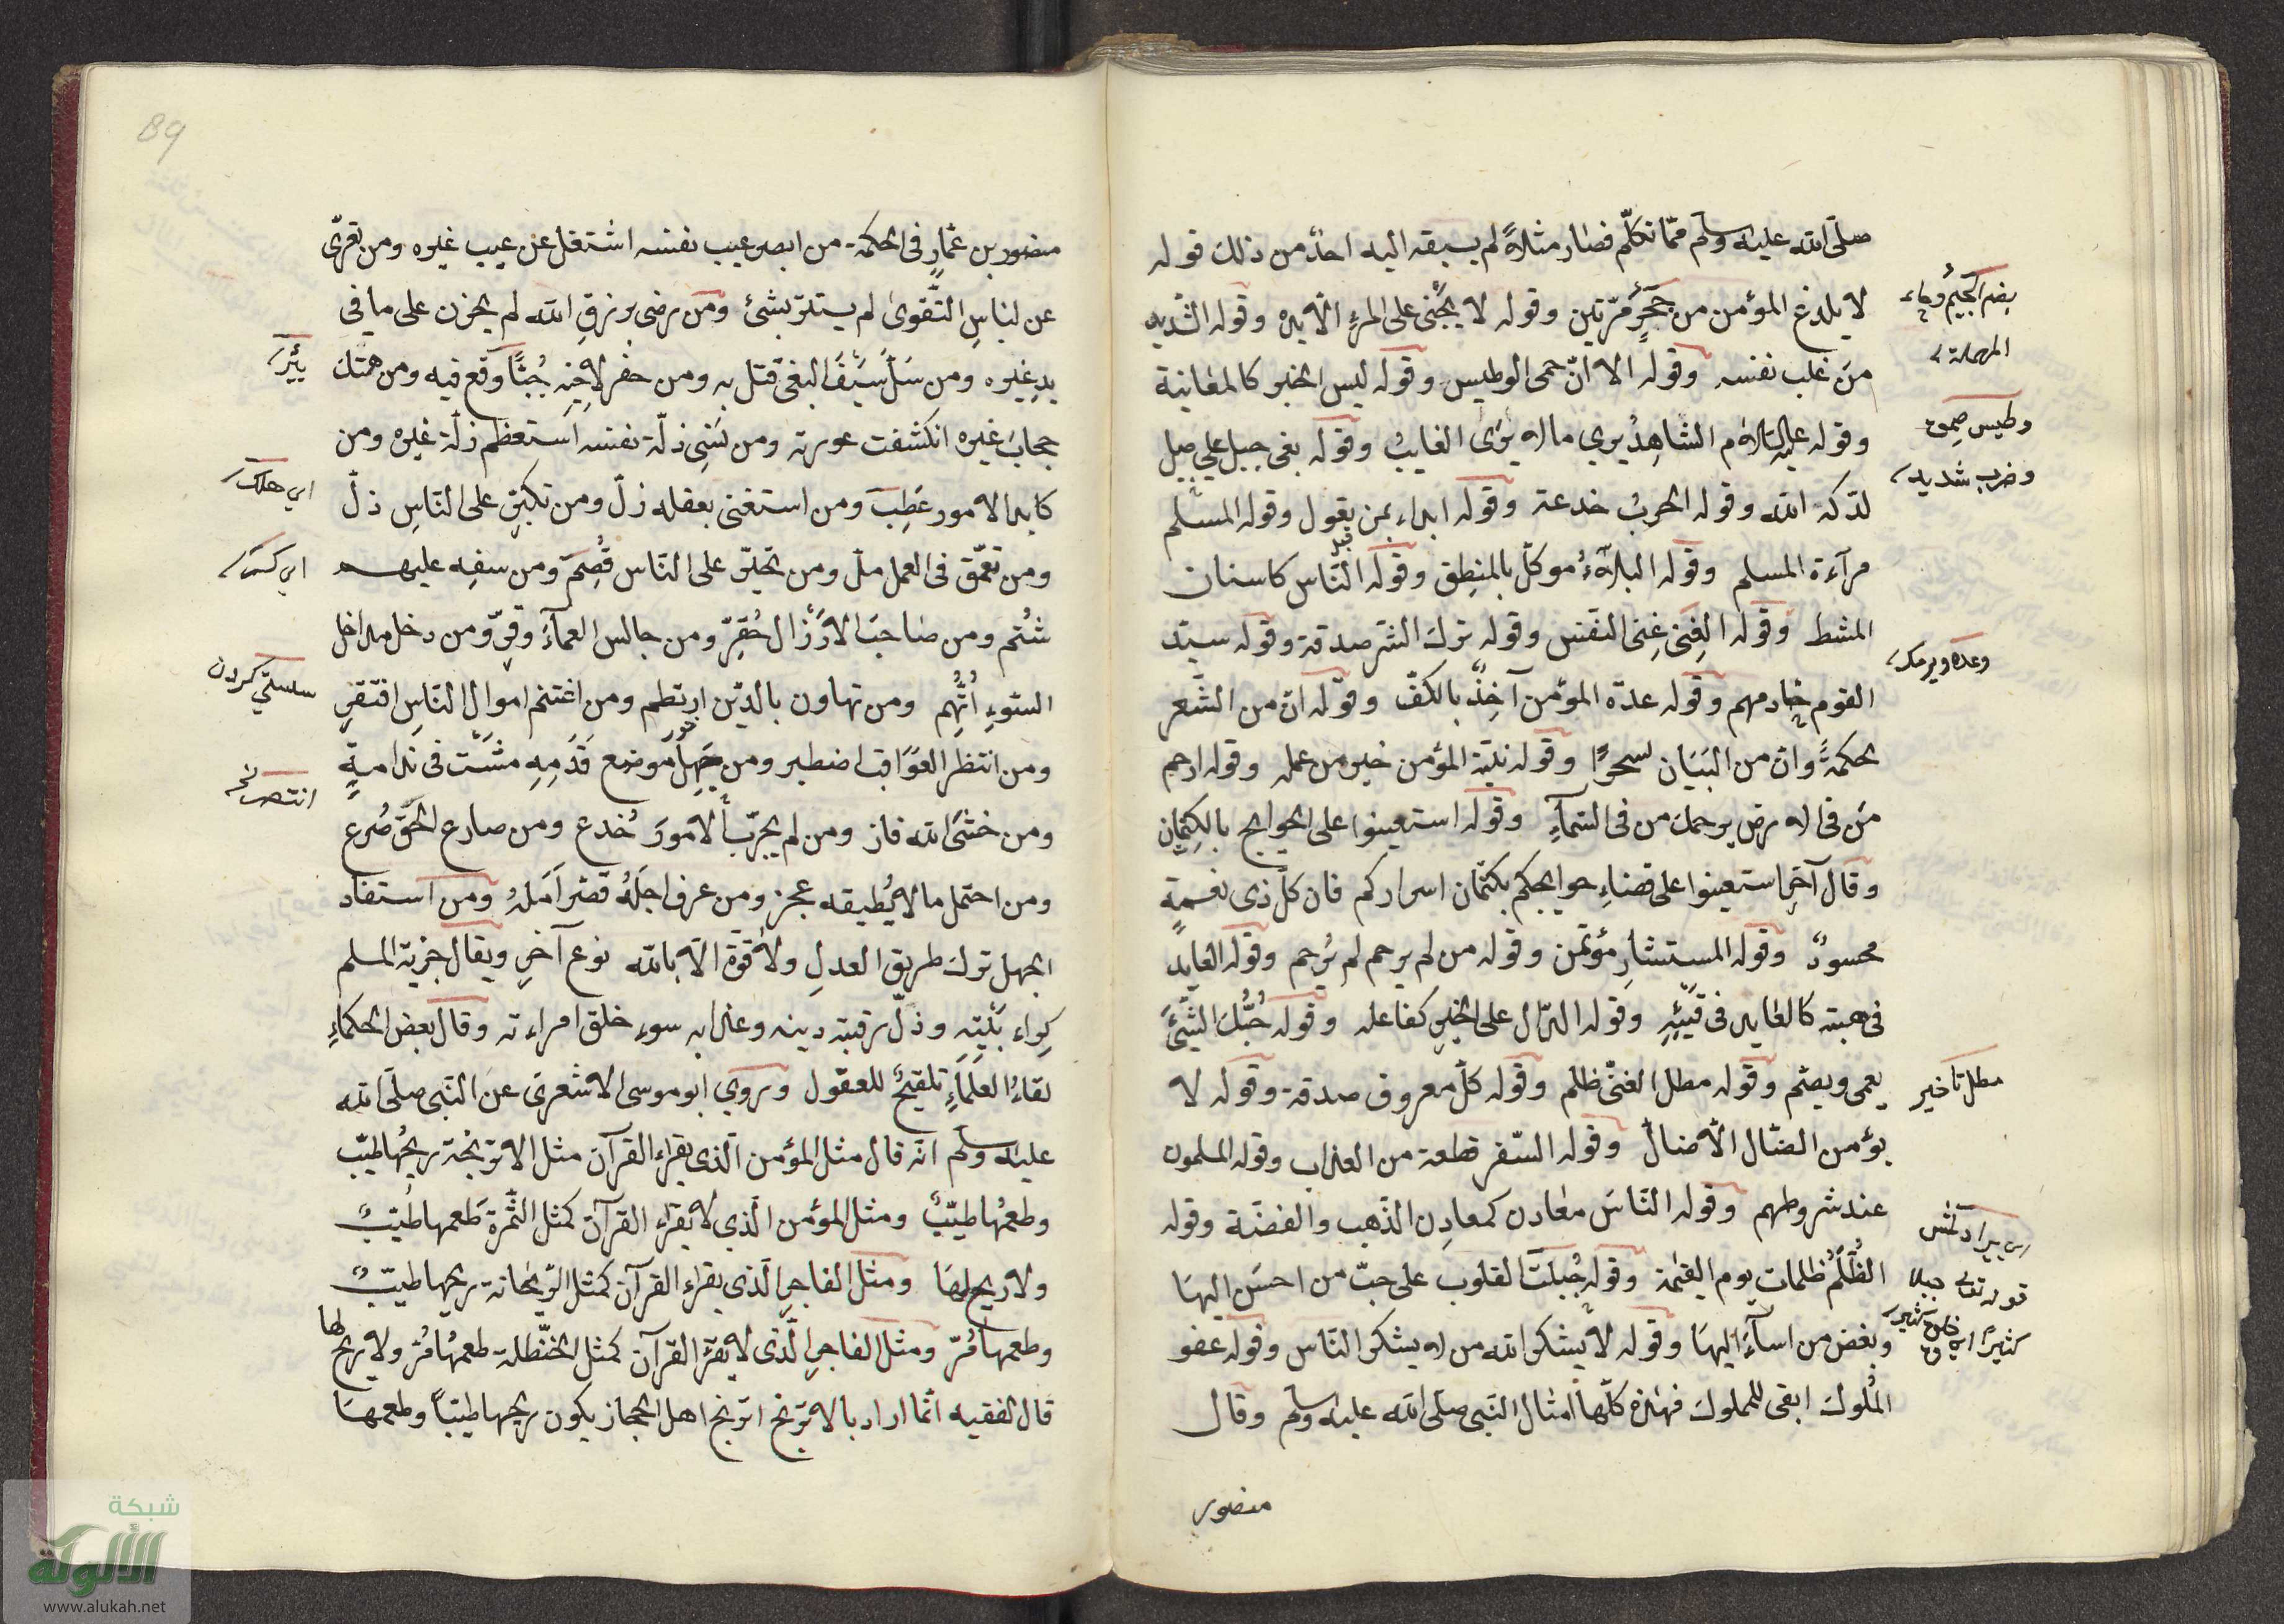 صلّى الله عليه وسلم ممّا تكلّم فصار مثلاً لم يسبقه اليه احدٌ من ذلك قوله
لا يلدغ المؤمن من حجرٍ مرّتين وقوله لا يجنى على المرءِ الّا يده وقوله الشديد
من غلب نفسه وقوله الا انّ حمى الوطيس وقوله ليس الخبر كالمعاينة
وقوله عليه السلام الشاهدُ يرى ما لا يرى الغايبُ وقوله بغى جبل على جبل
لدكه الله وقوله الحربُ خدعة وقوله ابداء بمن يعول وقوله المسلم
مرآءة المسلم وقوله البلاءُ موكّل بالمنطق وقوله النّاس كاسنان
المشط وقوله الغِنى غِنى النفس وقوله ترك الشر صدقة وقوله سيّد
القوم خادمهم وقوله عدة المؤمن آخِذٌ بالكفّ وقوله انّ من الشّعر
لحكمةً وانّ من البَيَان لسحرًا وقوله نيّة المؤمن خير من عمله وقوله ارحم
مَن فى الارض يرحمك من فى السّمآءِ وقوله استعينوا على الحوايج بالكِتمان
وقال آخر استعينوا على قضاءِ حوايجكم بكتمان اسراركم فان كلّ ذى نعمةٍ
محسودٌ وقوله المستشار مؤتمن وقوله من لم يرحم لم يُرحم وقوله العايد
فى هبته كالعايد فى قيئِهِ وقوله الدّال على الخيرِ كفاعله وقوله حُبّكَ الشّئَ
يعمى ويصّم وقوله مطل الغنىّ ظلم وقوله كلّ معروف صدقة وقوله لا
يؤمن الضّال الّا ضالّ وقوله السّفر قطعة من العذاب وقوله المسلمون
عند شروطهم وقوله النّاسَ معادن كمعادِن الذّهب والفضّة وقوله
الظُلُمُ ظلمات يوم القيمة وقوله جُبلت القلوب على حبّ من احسَن اليها
وبغض من اسآءَ اليهَا وقوله لا يشكر الله من لا يشكر النّاس وقوله عفو
المُلوك ابقى للمملوك فهذه كلّها امثال النّبى صلّى الله عليه وسلم وقال
منصور
بضم الجيم وحاء
المهملة
وضرب شديد
مطل تاخير
قوله تعالى جبلا
كثيرًا
89
منصور بن عمّارٍ فى الحكمة من ابصر عيب نفسه اشتغل عن عيب غيره ومن تعرّى
عن لباسِ التّقوىٰ لم يستتر بشئ ومن رضى برزقِ الله لم يحزن على ما فى
يدِ غيره ومن سَلّ سَيفَ البغى قتل به ومن حفر لاخيه جُبًّا وقع فيه ومن هتك
حجابَ غيره انكشفت عورته ومن نسى زلّة نفسه استعظم زلّة غيره ومن
كابد الامور عَطِبَ ومن استغنى بعقله زلّ ومن تكبّر على النّاسِ ذلّ
ومن تعمّق فى العمل ملّ ومن تجبّر على النّاس قُصِمَ ومن سفِه عليهم
شُتم ومن صاحبَ الارذال حُقِرّ ومن جالس العلمآءَ وقّر ومن دخل مداخل
السّوءِ اُتّهم ومن تهاون بالدّين ارتطم ومن اغتنم اموال النّاسِ افتقر
ومن انتظر العَوَاقبا اصطبر ومن جهل موضع قدَمِهِ مشت فى ندامةٍ
ومن خشَى الله فاز ومن لم يجرّب الامورَ خُدع ومن صارع الحقّ صُرع
ومن احتمل ما لا يُطيقه عجز ومن عرف اجلهُ قصّر اَملهُ ومن استفاد
الجهل ترك طريق العدلِ ولا قوّة الّا بالله نوع آخر ويقال جزية المسلم
كِراء بَيْتِهِ وذلّ رقبته دينه وعذابه سوء خلق امراءته وقال بعض الحكماءِ
لقاءُ العلَمَاءِ تلقيحٌ للعقول وروي ابو موسى الاشعرى عن النّبى صلّى الله
عليه وسلم انّه قال مثل المؤمن الّذى يقراء القرآن مثل الاترنجة ريحُها طيّب
وطعمُها طيّبٌ ومثل المؤمن الّذي لا يقراء القرآن كمثل الثّمرة طعمها طيّبٌ
ولا ريح لها ومثل الفاجرِ الّذى يقراء القرآن كمثل الرّيحانة ريحها طيّبٌ
وطعمها مُرّ ومثل الفاجرِ الّذى لا يقرَأ القرآن كمثل الحنظلة طعمُها مُرّ ولا ريح لها
قال الفقيه انّما اراد بالاترنج اترنج اهل الحجاز يكون ريحها طيّباً وطعمها
اى هلك
اى كسر
شبكة
الألوكة
www.alukah.net